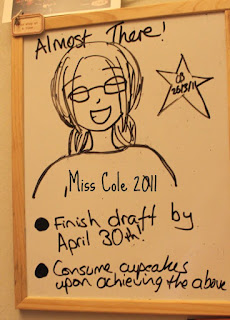 Almost There!
CB
26/3/11
Miss Cole 2011
Finish draft by
April 30th!
Consume cupcakes
upon achieving the above